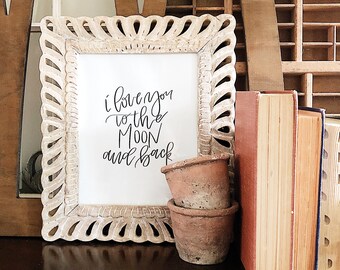 i love you
to the
MOON
and back